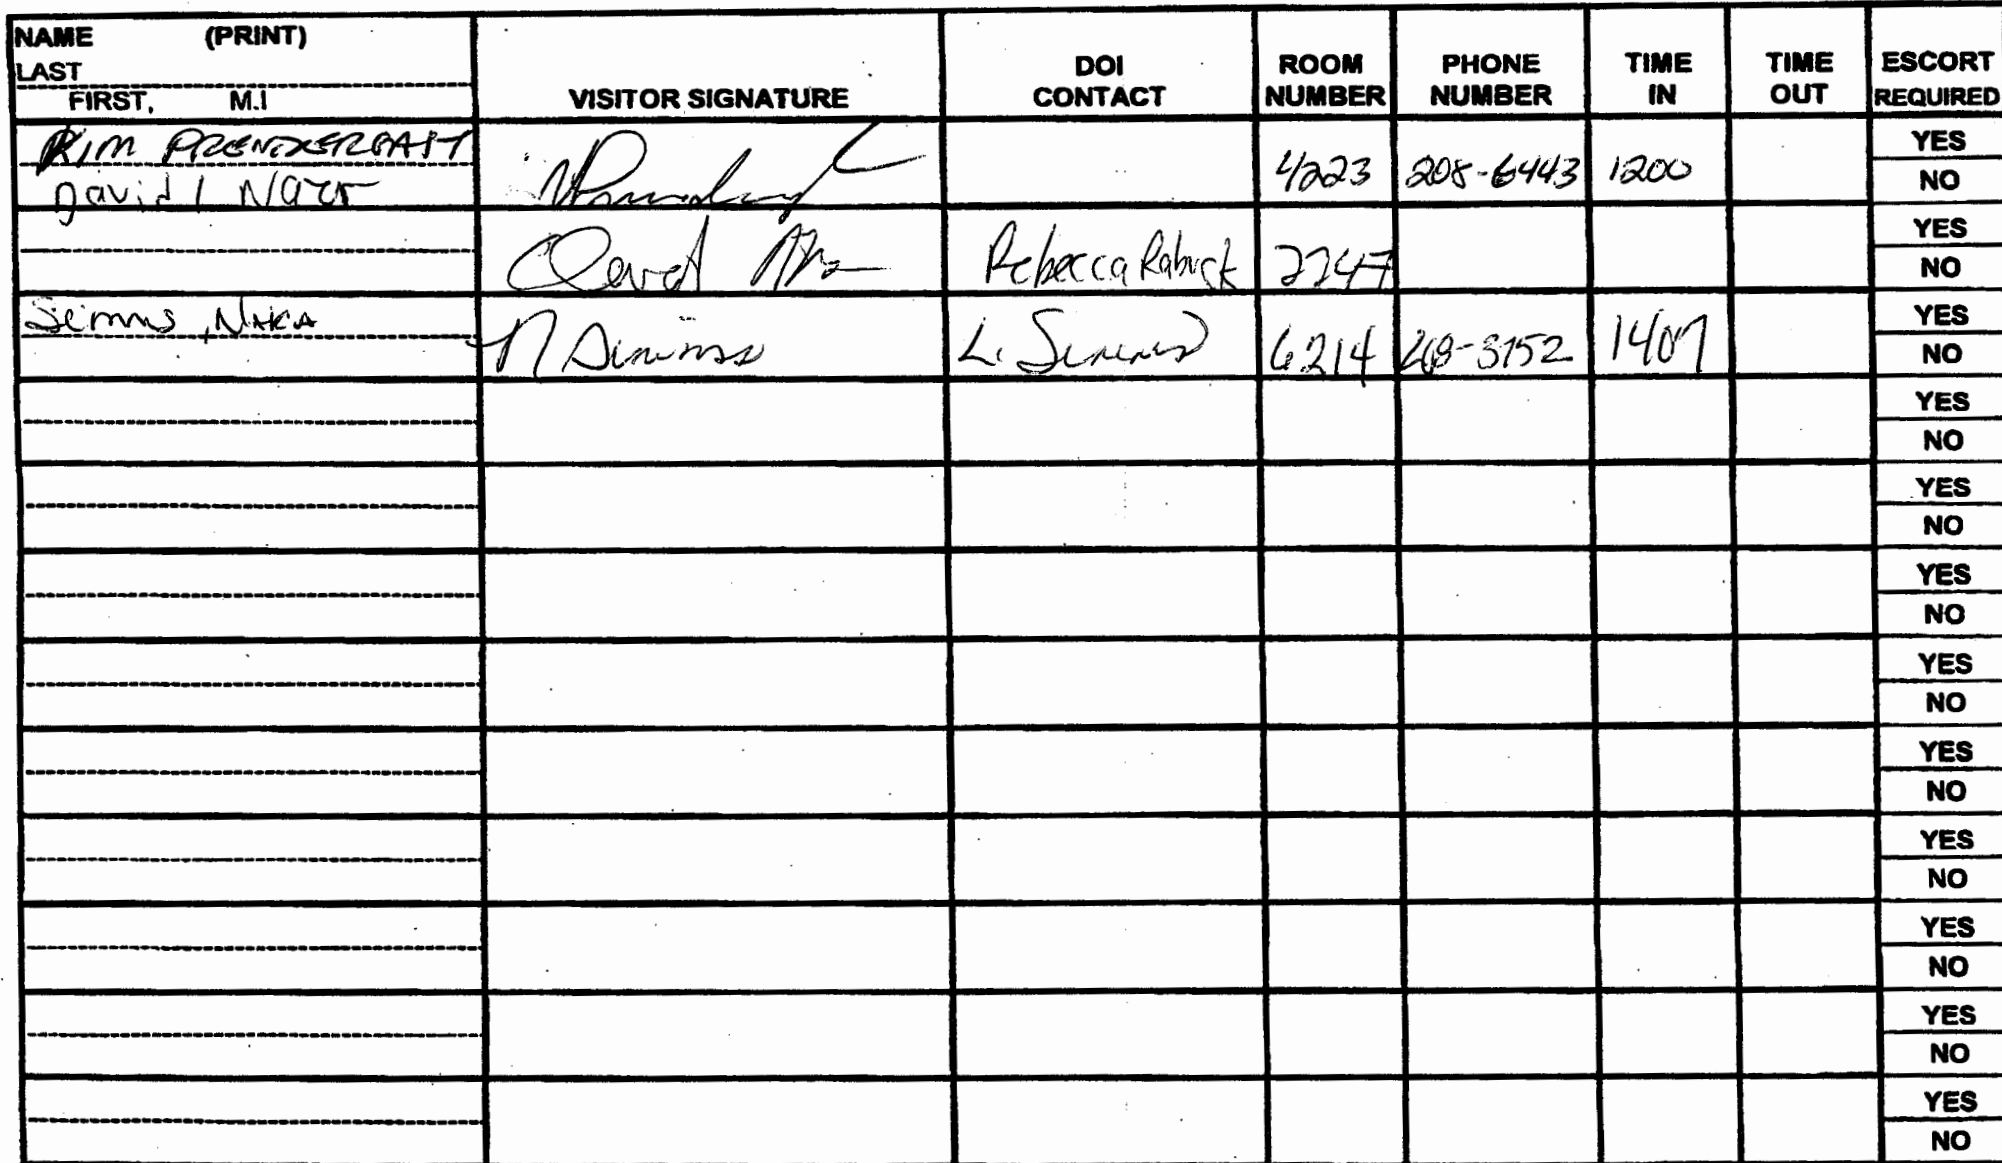 NAME (PRINT)
LAST
FIRST, M.I
VISITOR SIGNATURE
DOI CONTACT
ROOM NUMBER
PHONE NUMBER
TIME IN
TIME OUT
ESCORT REQUIRED
KIM PRENDERGAST 4223 208-6443 1200 YES
David NO
Rebecca Rabuck 2247 YES
NO
Simms, N Simms L. Simms 6214 208-3152 1407 YES
NO
YES
NO
YES
NO
YES
NO
YES
NO
YES
NO
YES
NO
YES
NO
YES
NO
YES
NO